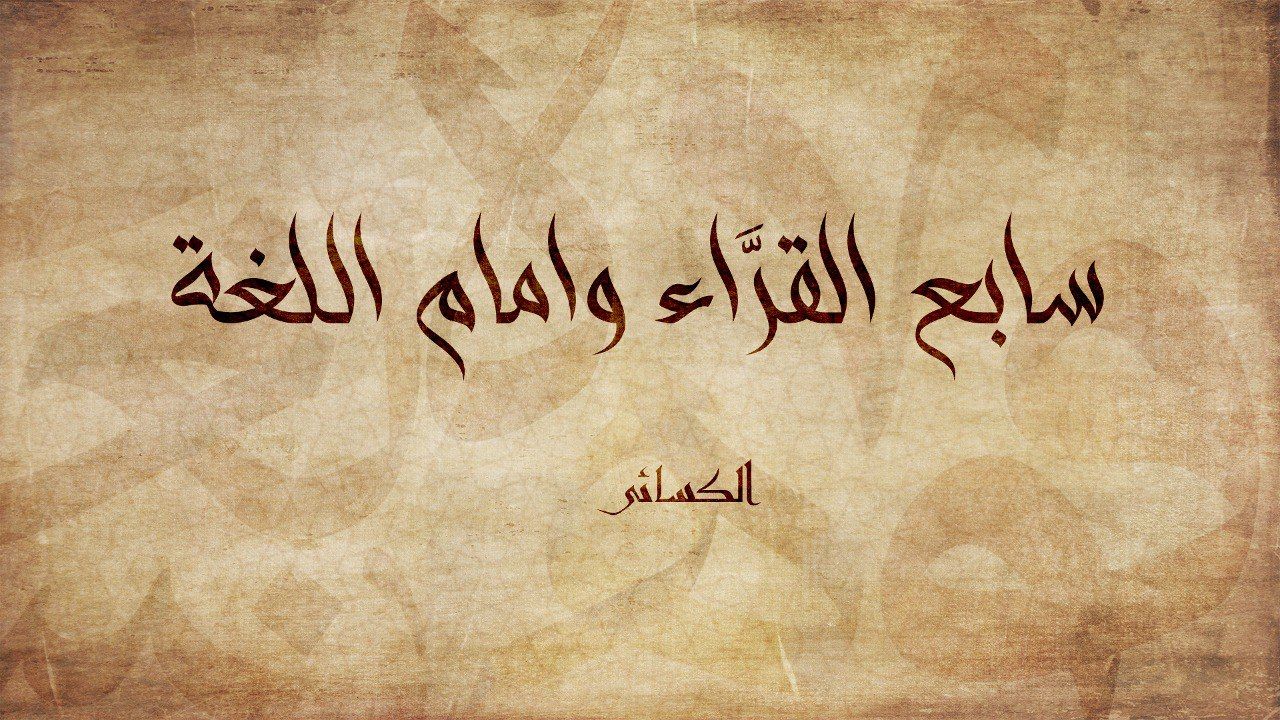 سابع القرَّاء وامام اللغة
الكسائي